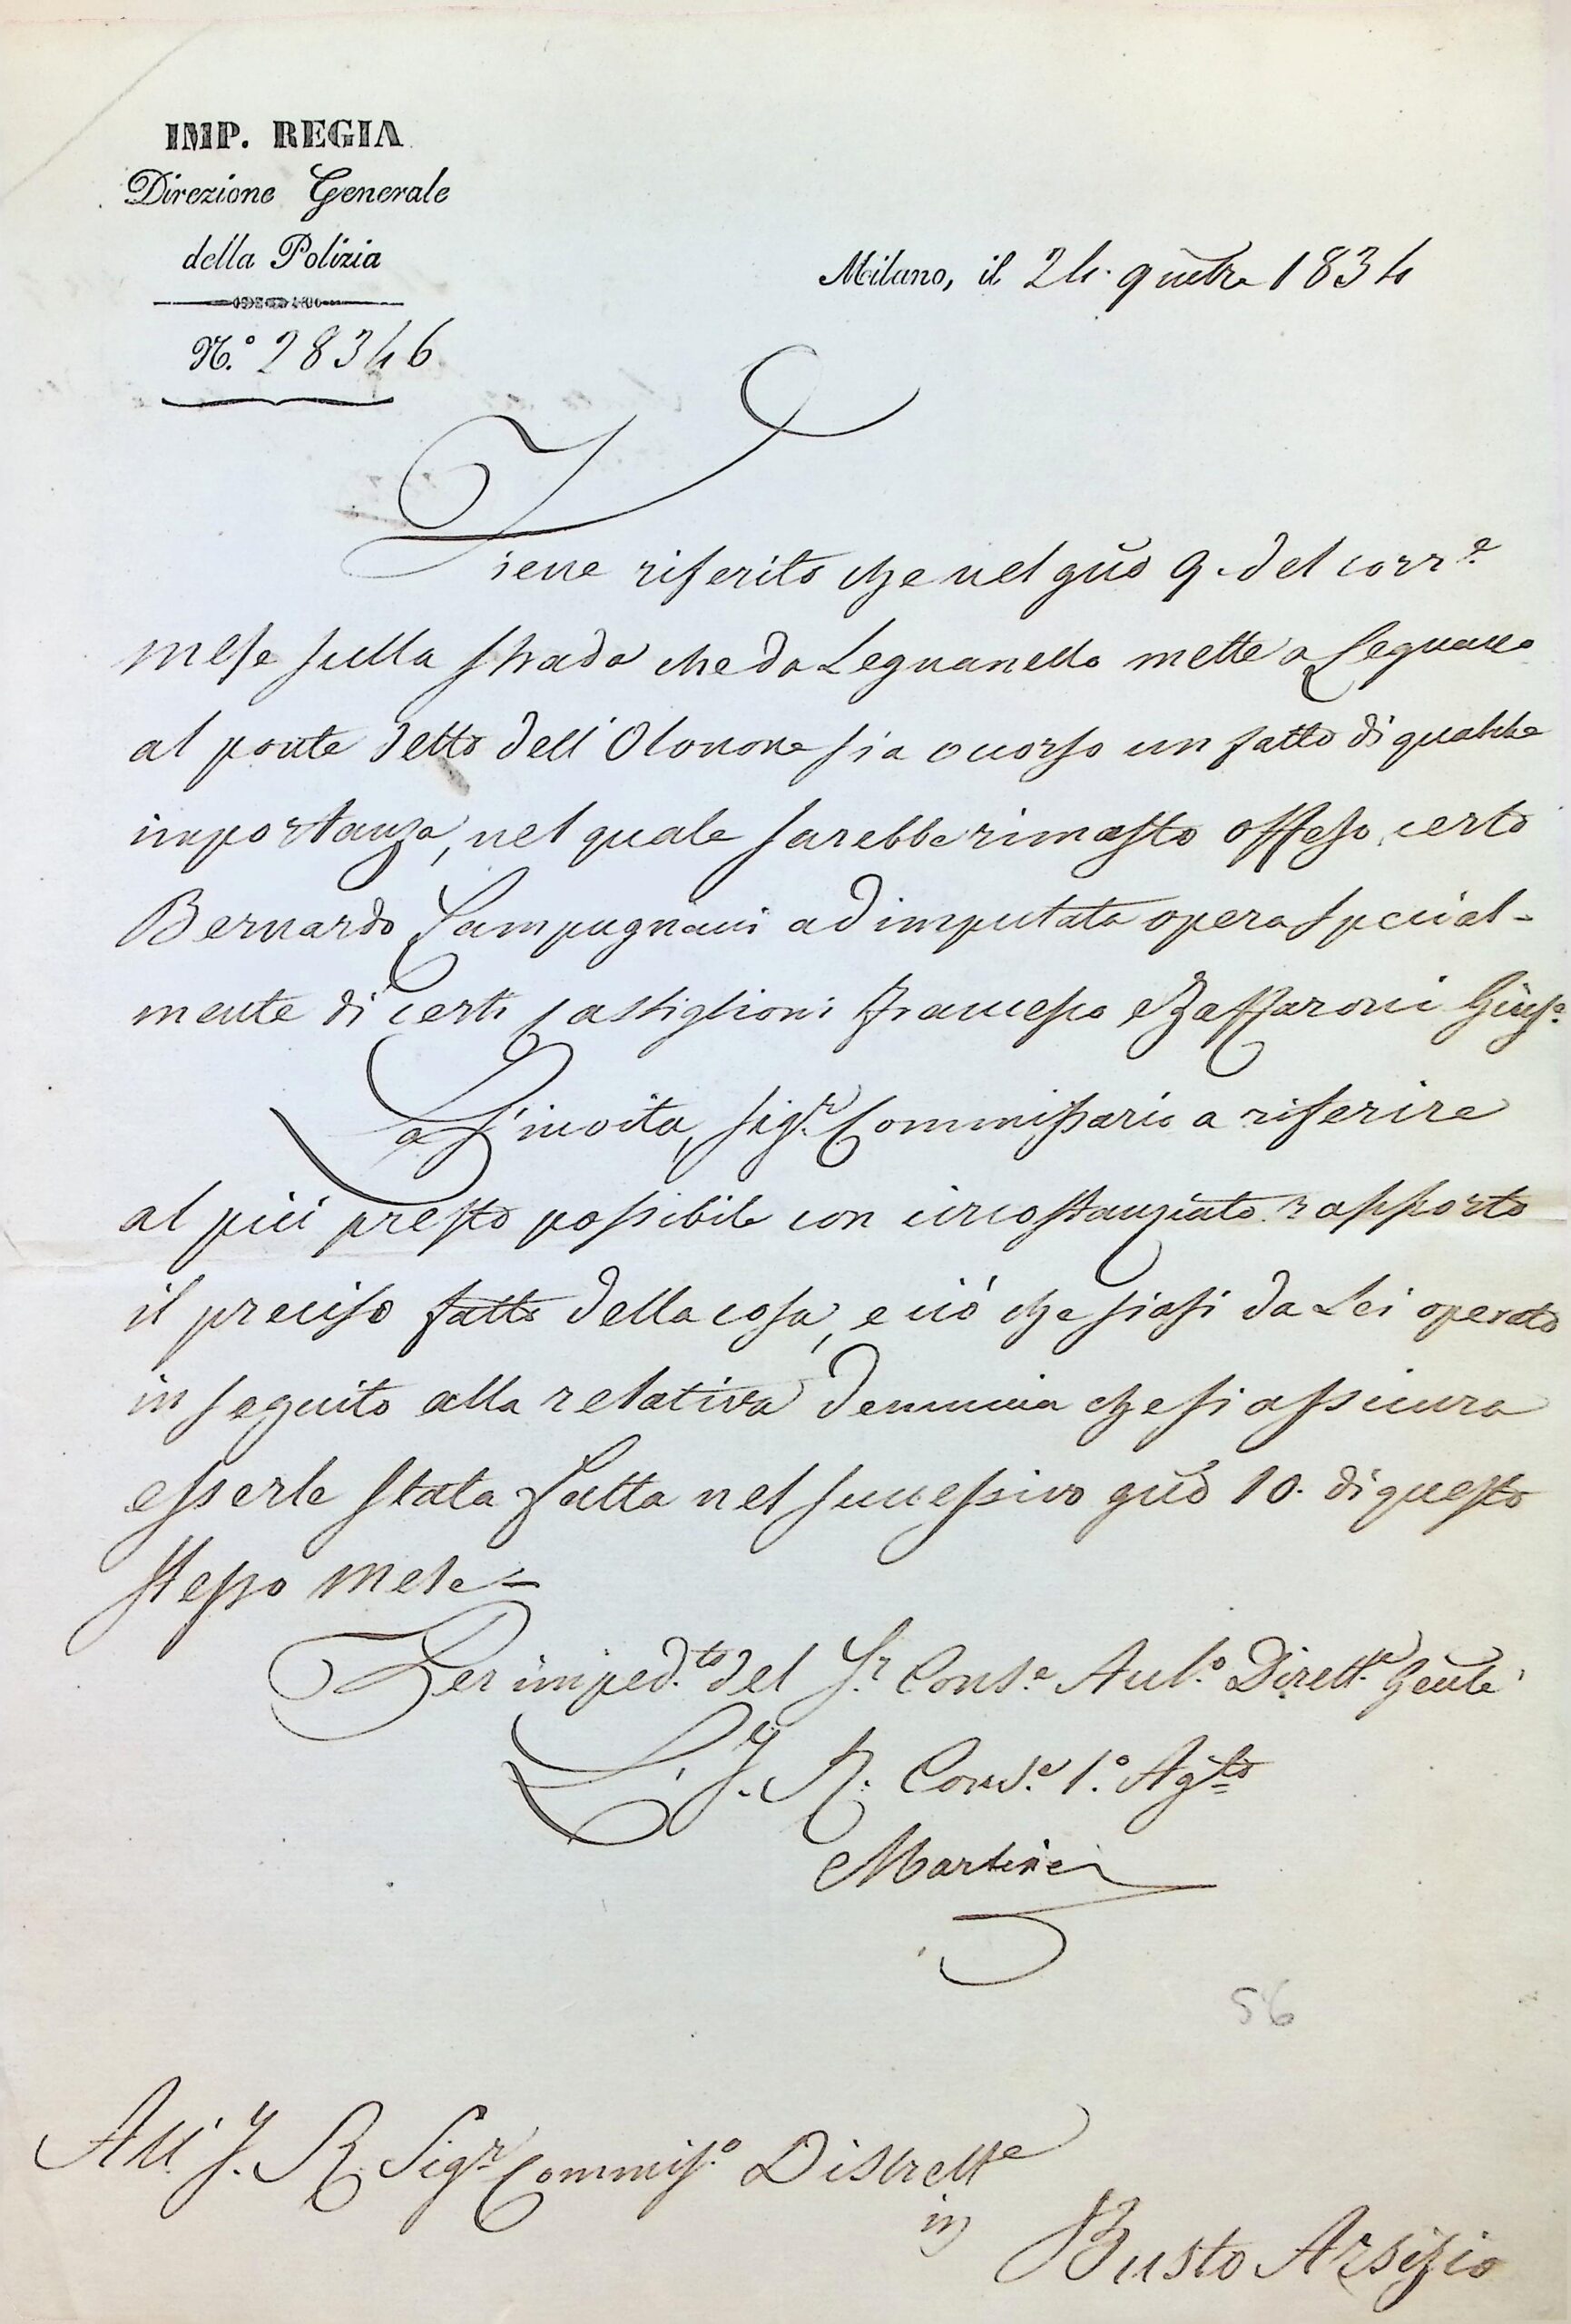 IMP. REGIA
Direzione Generale
della Polizia
N.° 28346
Milano, il 24. 9mbre 1834
Viene riferito che nel gno 9. del corr.e
mese sulla strada che da Legnanello mette a Legnano
al ponte detto dell'Olonone sia occorso un fatto di qualche
importanza, nel quale sarebbe rimasto offeso certo
Bernardo Lampugnani ad imputata opera special-
mente di certi Castiglioni Francesco e Zaffaroni Gius.e
La s'invita, Sig.r Commissario a riferire
al più presto possibile con circostanziato rapporto
il preciso fatto della cosa, e ciò che siasi da Lei operato
in seguito alla relativa denuncia che si assicura
esserle stata fatta nel successivo gno 10. di questo
stesso mese -
Per imped.to del S.r Cons.e Aul.o Dirett.e Gente
L'I. R. Cons.e 1.° Agto
Martinez
56
All' I. R. Sig.r Commiss.o Distrett.e
in
Busto Arsizio